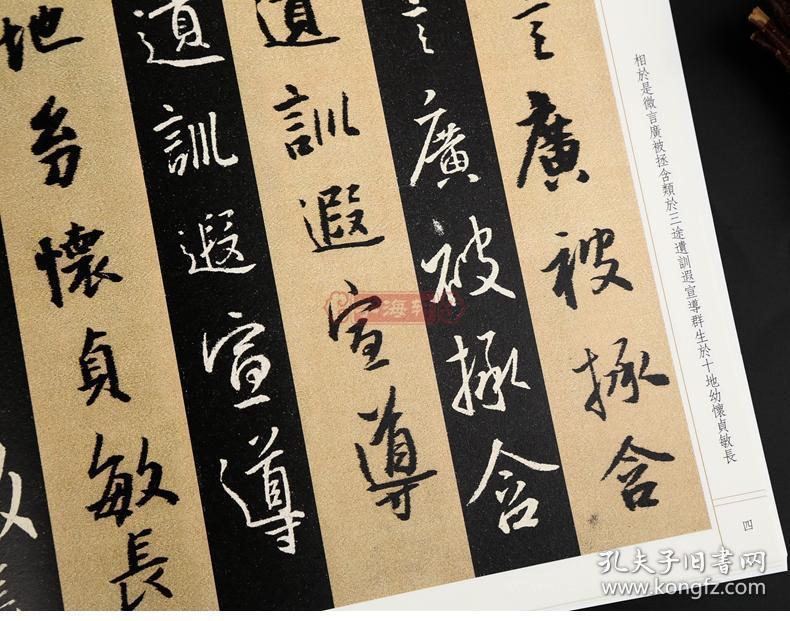 相於是微言廣被拯含類於三途遺訓遐宣導群生於十地幼懷貞敏長
言廣被拯含
言廣被拯含
遺訓遐宣導
遺訓遐宣導
地幼懷貞敏長
敏長
四
海轩
孔夫子旧书网
www.kongfz.com